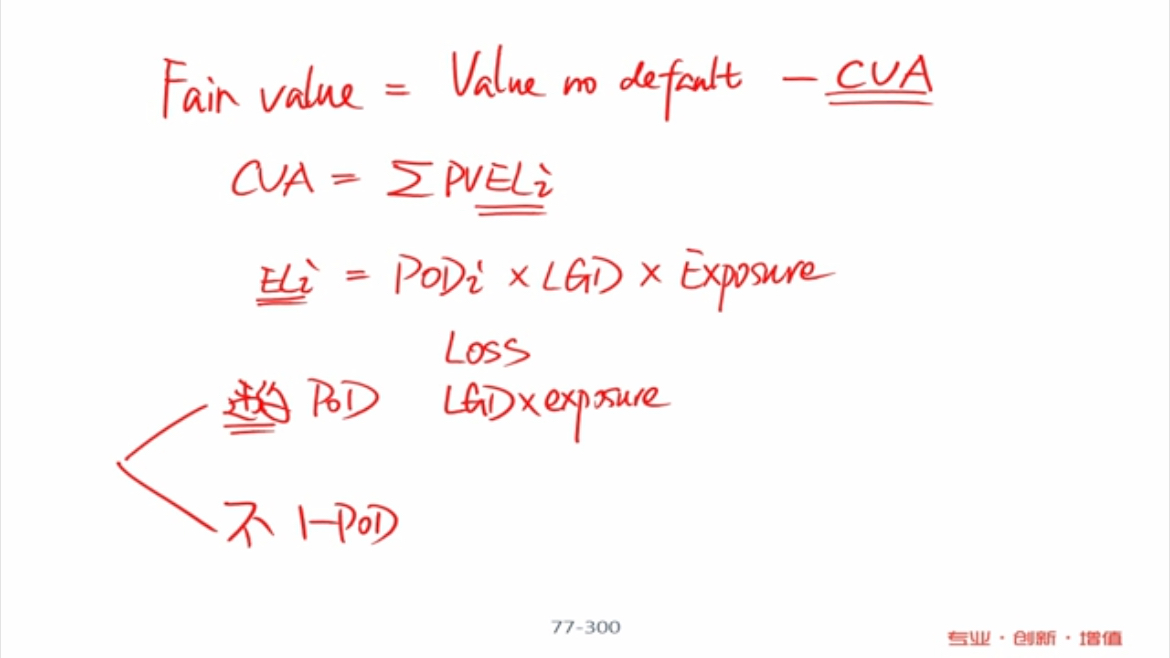 Fair value = Value no default − CVA
CVA = Σ PVELi
ELi = PODi × LGD × Exposure
Loss
违约 POD LGD×exposure
不 1−POD
77-300
专业·创新·增值